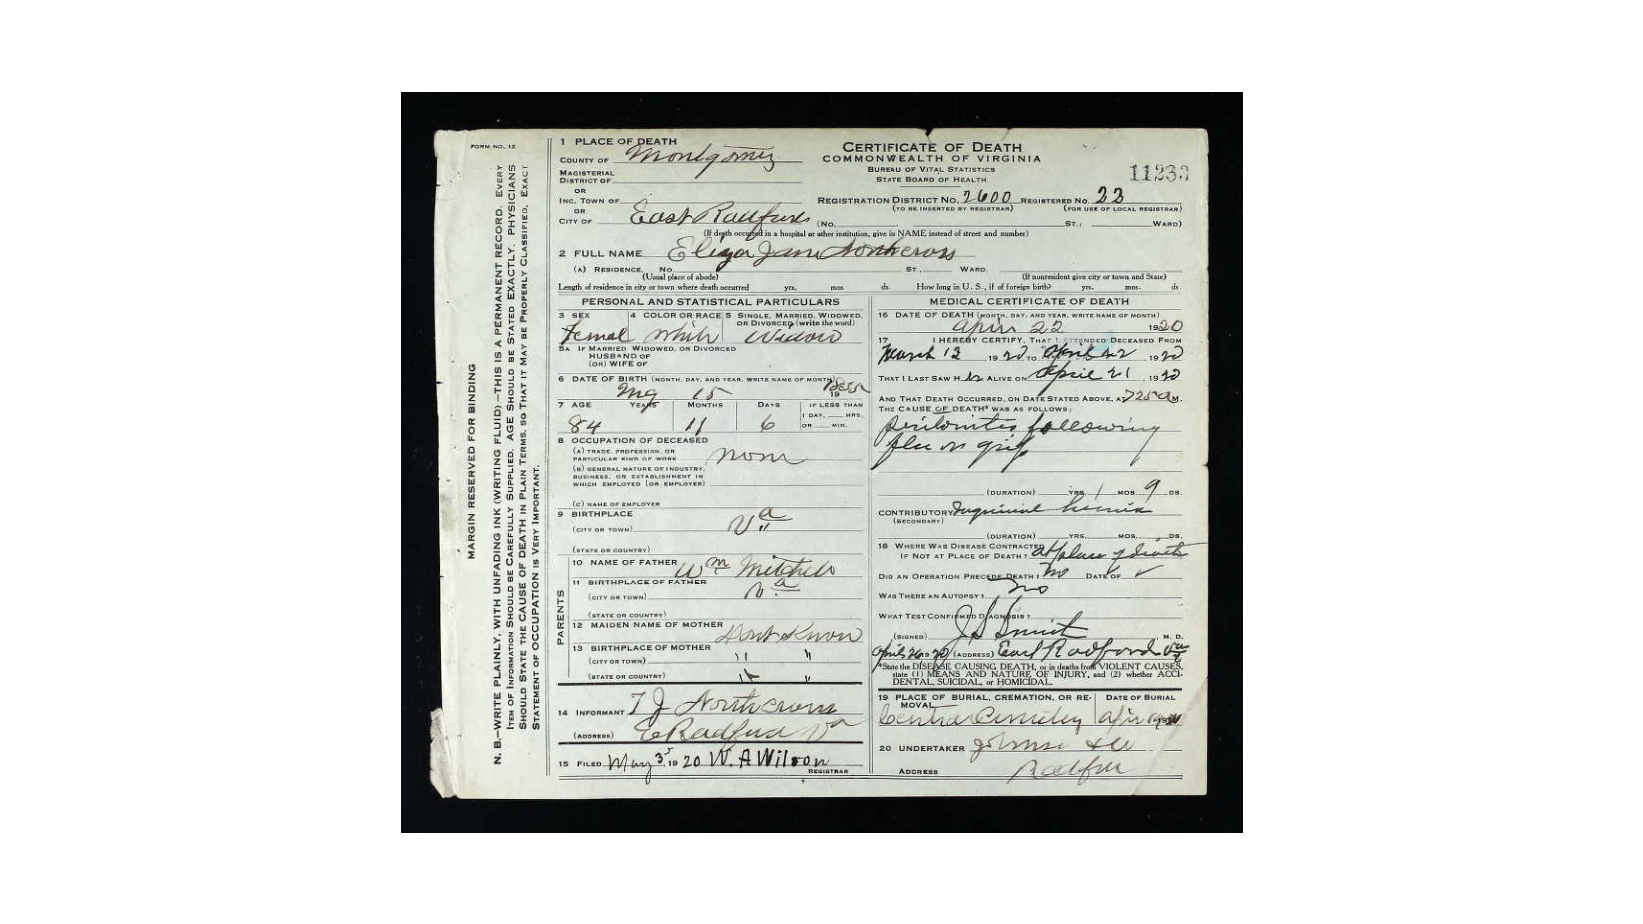 FORM NO. 12
MARGIN RESERVED FOR BINDING
N. B.—WRITE PLAINLY, WITH UNFADING INK (WRITING FLUID)—THIS IS A PERMANENT RECORD. EVERY
ITEM OF INFORMATION SHOULD BE CAREFULLY SUPPLIED. AGE SHOULD BE STATED EXACTLY. PHYSICIANS
SHOULD STATE THE CAUSE OF DEATH IN PLAIN TERMS, SO THAT IT MAY BE PROPERLY CLASSIFIED. EXACT
STATEMENT OF OCCUPATION IS VERY IMPORTANT.
1 PLACE OF DEATH
COUNTY OF Montgomery
MAGISTERIAL
DISTRICT OF
OR
INC. TOWN OF
OR
CITY OF East Radford
CERTIFICATE OF DEATH
COMMONWEALTH OF VIRGINIA
BUREAU OF VITAL STATISTICS
STATE BOARD OF HEALTH
11233
REGISTRATION DISTRICT NO. 2600 REGISTERED NO. 23
(TO BE INSERTED BY REGISTRAR) (FOR USE OF LOCAL REGISTRAR)
(No. ST.; WARD)
(If death occurred in a hospital or other institution, give its NAME instead of street and number)
2 FULL NAME Eliza Jane Northcross
(A) RESIDENCE. No. ST., WARD.
(Usual place of abode) (If nonresident give city or town and State)
Length of residence in city or town where death occurred yrs. mos ds. How long in U. S., if of foreign birth? yrs. mos. ds
PERSONAL AND STATISTICAL PARTICULARS
3 SEX 4 COLOR OR RACE 5 SINGLE, MARRIED, WIDOWED, OR DIVORCED (write the word)
Femal White Widow
5A IF MARRIED, WIDOWED, OR DIVORCED
HUSBAND OF
(OR) WIFE OF
6 DATE OF BIRTH (MONTH, DAY, AND YEAR, WRITE NAME OF MONTH)
15 19
7 AGE YEARS MONTHS DAYS IF LESS THAN
1 DAY, HRS.
OR MIN.
84 11 6
8 OCCUPATION OF DECEASED
(A) TRADE, PROFESSION, OR
PARTICULAR KIND OF WORK none
(B) GENERAL NATURE OF INDUSTRY,
BUSINESS, OR ESTABLISHMENT IN
WHICH EMPLOYED (OR EMPLOYER)
(C) NAME OF EMPLOYER
9 BIRTHPLACE
(CITY OR TOWN) Va
(STATE OR COUNTRY) "
PARENTS
10 NAME OF FATHER Wm Mitchell
11 BIRTHPLACE OF FATHER
(CITY OR TOWN) Va
(STATE OR COUNTRY)
12 MAIDEN NAME OF MOTHER Dont Know
13 BIRTHPLACE OF MOTHER
(CITY OR TOWN) " "
(STATE OR COUNTRY) " "
14 INFORMANT T J Northcross
(ADDRESS) E Radford Va
15 FILED May 3 1920 W. A Wilson
REGISTRAR
MEDICAL CERTIFICATE OF DEATH
16 DATE OF DEATH (MONTH, DAY, AND YEAR, WRITE NAME OF MONTH)
April 22 1920
17 I HEREBY CERTIFY, THAT I ATTENDED DECEASED FROM
March 13 1920 TO April 22 1920
THAT I LAST SAW H er ALIVE ON April 21 1920
AND THAT DEATH OCCURRED, ON DATE STATED ABOVE, AT 725 a M.
THE CAUSE OF DEATH* WAS AS FOLLOWS:
peritonitis following
flu or grip
(DURATION) YRS. 1 MOS. 9 DS.
CONTRIBUTORY Inguinal hernia
(SECONDARY)
(DURATION) YRS. MOS. DS.
18 WHERE WAS DISEASE CONTRACTED
IF NOT AT PLACE OF DEATH? at place of death
DID AN OPERATION PRECEDE DEATH? no DATE OF
WAS THERE AN AUTOPSY? no
WHAT TEST CONFIRMED DIAGNOSIS?
(SIGNED) J. S. Smith M. D.
April 26 1920 (ADDRESS) East Radford Va
*State the DISEASE CAUSING DEATH, or in deaths from VIOLENT CAUSES,
state (1) MEANS AND NATURE OF INJURY, and (2) whether ACCI-
DENTAL, SUICIDAL, or HOMICIDAL.
19 PLACE OF BURIAL, CREMATION, OR RE-
MOVAL DATE OF BURIAL
Central Cemetery
20 UNDERTAKER
ADDRESS Radford